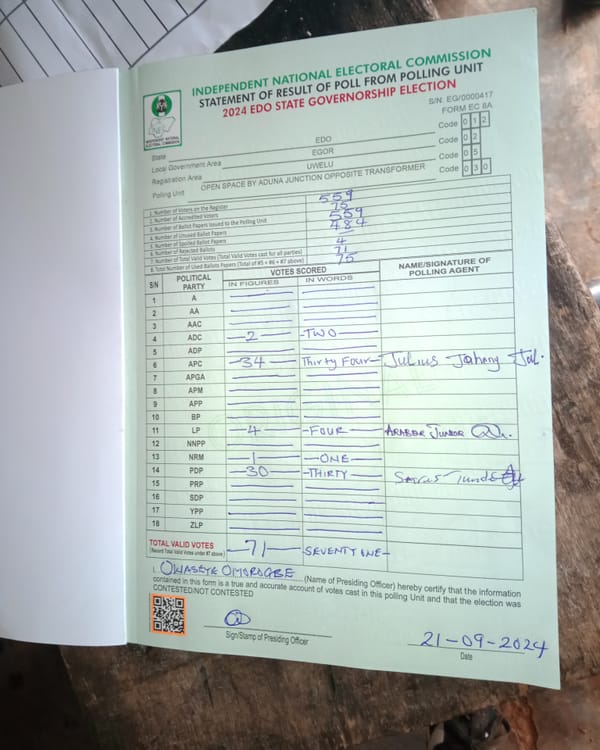 INDEPENDENT NATIONAL ELECTORAL COMMISSION
STATEMENT OF RESULT OF POLL FROM POLLING UNIT
2024 EDO STATE GOVERNORSHIP ELECTION
S/N: EG/0000417
FORM EC 8A
INDEPENDENT NATIONAL ELECTORAL COMMISSION
State EDO Code 0 1 2
Local Government Area EGOR Code 0 2
Registration Area UWELU Code 0 5
Polling Unit OPEN SPACE BY ADUNA JUNCTION OPPOSITE TRANSFORMER Code 0 3 0
1. Number of Voters on the Register 559
2. Number of Accredited Voters 75
3. Number of Ballot Papers Issued to the Polling Unit 559
4. Number of Unused Ballot Papers 484
5. Number of Spoiled Ballot Papers
6. Number of Rejected Ballots 4
7. Number of Total Valid Votes (Total Valid Votes cast for all parties) 71
8. Total Number of Used Ballots Papers (Total of #5 + #6 + #7 above) 75
S/N POLITICAL PARTY VOTES SCORED NAME/SIGNATURE OF POLLING AGENT
IN FIGURES IN WORDS
1 A
2 AA
3 AAC
4 ADC 2 TWO
5 ADP
6 APC 34 Thirty Four Julius Johnny
7 APGA
8 APM
9 APP
10 BP
11 LP 4 FOUR JUNIOR
12 NNPP
13 NRM 1 ONE
14 PDP 30 THIRTY
15 PRP
16 SDP
17 YPP
18 ZLP
TOTAL VALID VOTES 71 SEVENTY ONE
(Record Total Valid Votes under #7 above)
I, OMOROGBE (Name of Presiding Officer) hereby certify that the information
contained in this form is a true and accurate account of votes cast in this polling Unit and that the election was
CONTESTED/NOT CONTESTED
Sign/Stamp of Presiding Officer
21-09-2024
Date